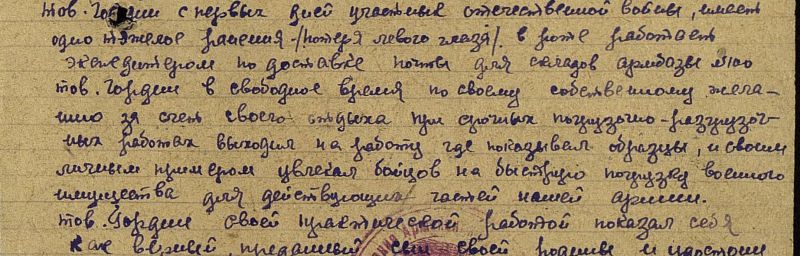 тов. Гордин с первых дней участник отечественной войны, имеет
одно тяжелое ранения /потеря левого глаза/. в роте работает
экспедитером по доставке почты для складов армбазы №100
тов. Гордин в свободное время по своему собственному жела-
нию за счет своего отдыха при срочных погрузочно-разгрузоч-
ных работах выходил на работу где показывал образцы, и своим
личным примером увлекал бойцов на быструю погрузку военного
имущества для действующих частей нашей армии.
тов. Гордин своей практической работой показал себя
как верный, преданный сын своей родины и достоин